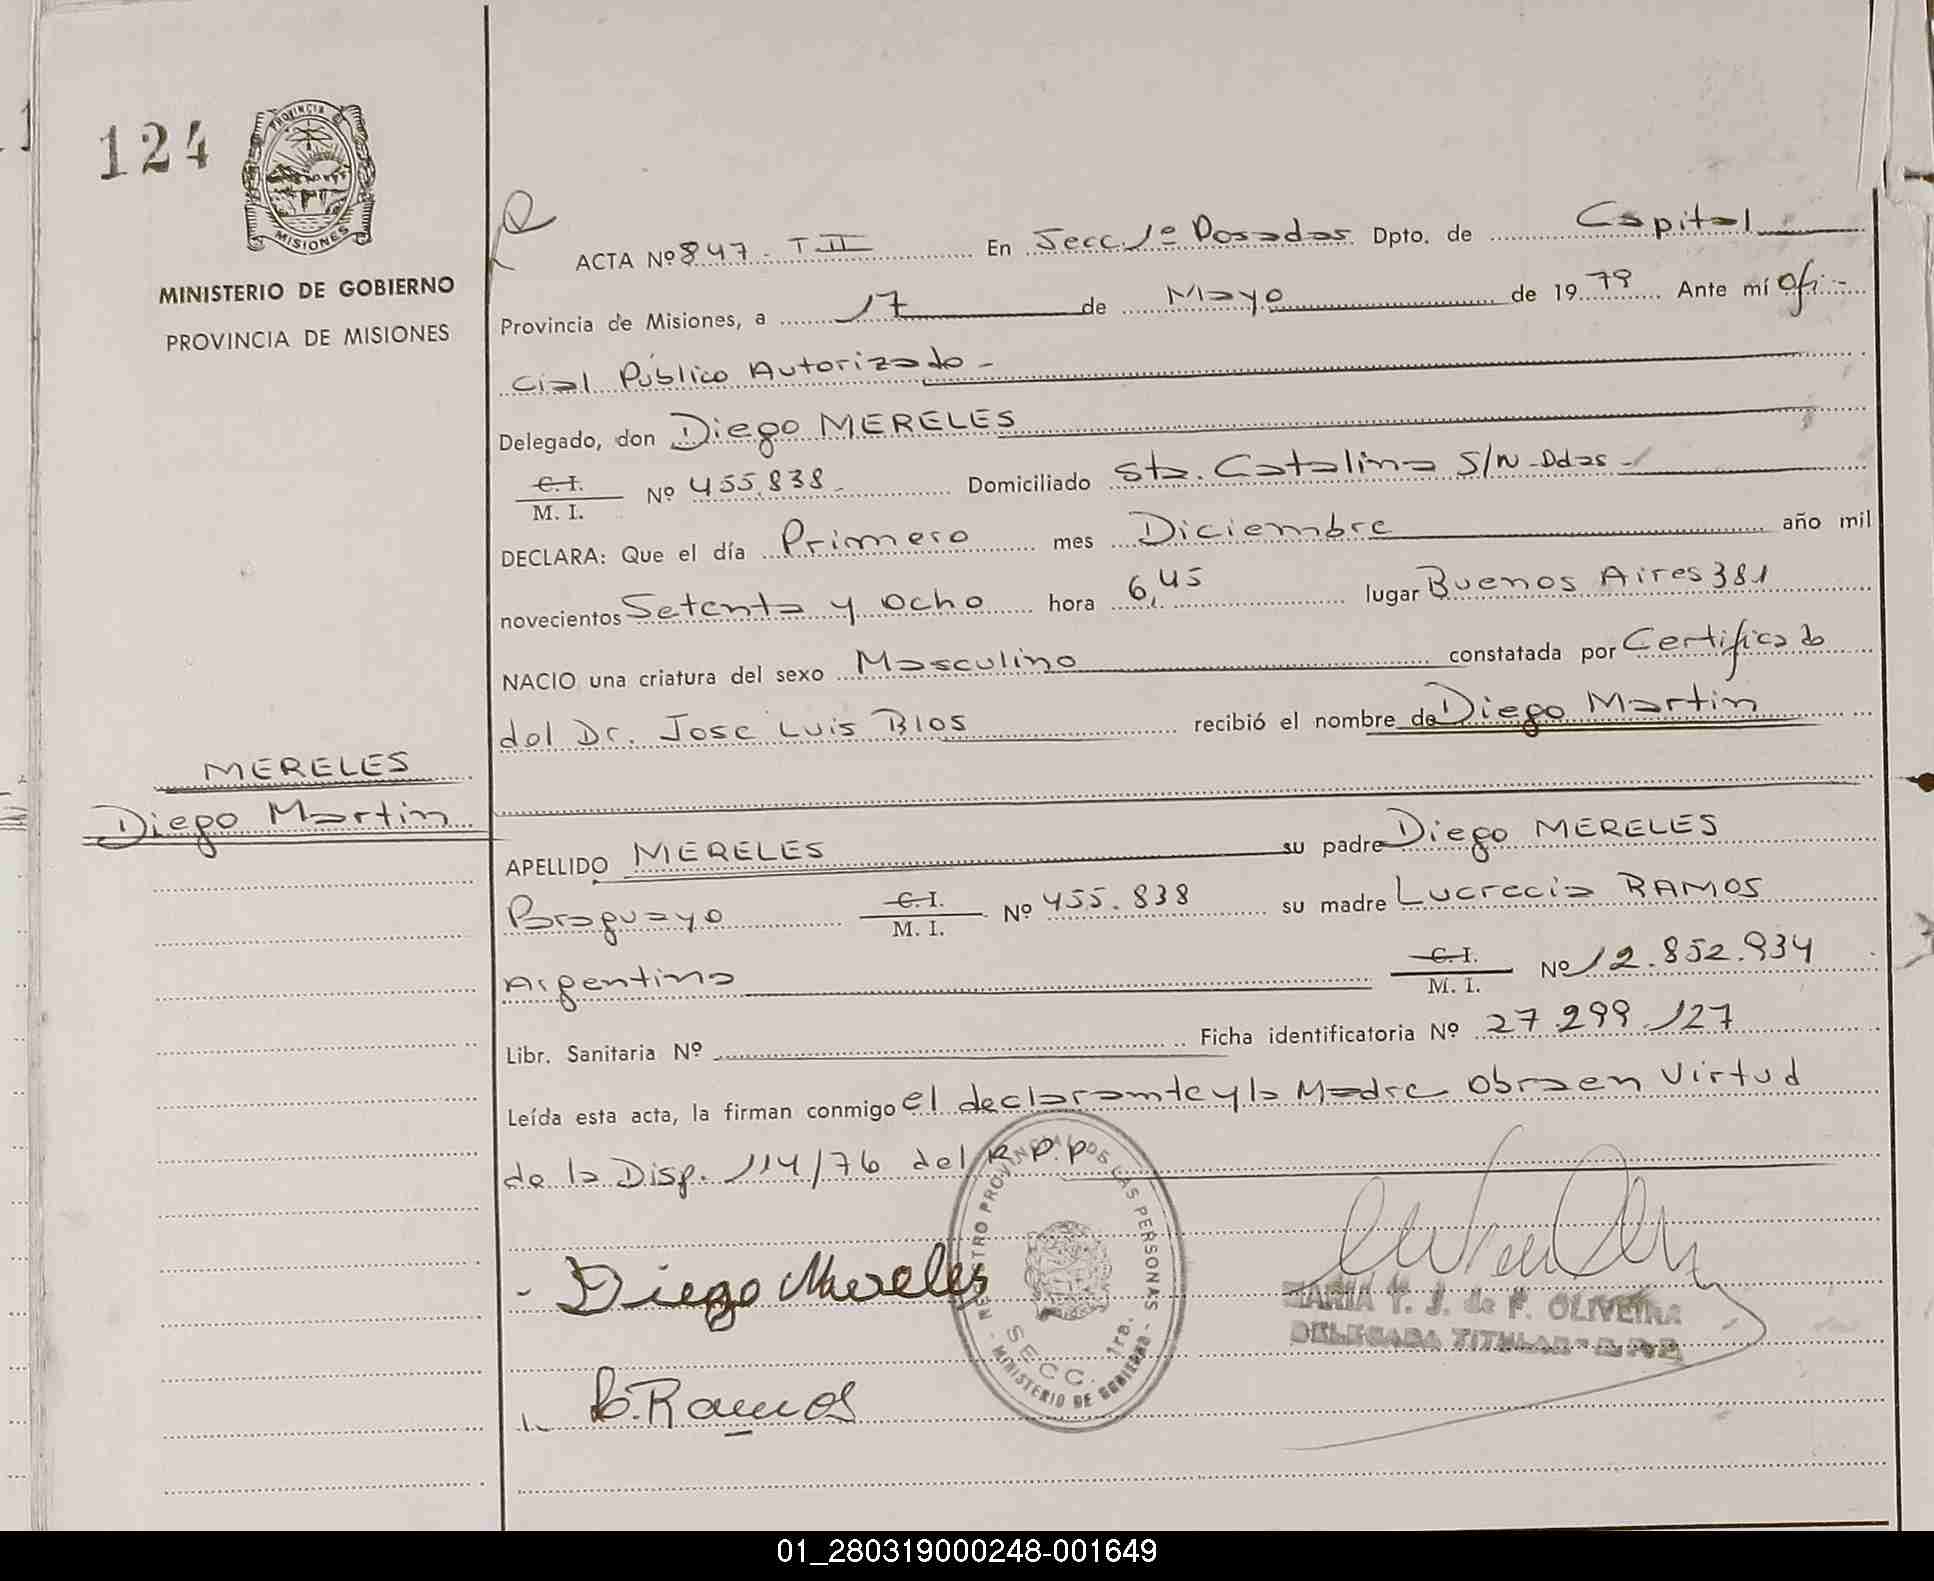 124
PROVINCIA DE
MISIONES
MINISTERIO DE GOBIERNO
PROVINCIA DE MISIONES
MERELES
Diego Martin
ACTA Nº 847 - T II En Secc. 1º Posadas Dpto. de Capital
Provincia de Misiones, a 17 de Mayo de 1979 Ante mí Ofi-
cial Público Autorizado -
Delegado, don Diego MERELES
C. I.
M. I. Nº 455.838 - Domiciliado Sta. Catalina S/N - Pdas -
DECLARA: Que el día Primero mes Diciembre año mil
novecientos Setenta y Ocho hora 6,45 lugar Buenos Aires 381
NACIO una criatura del sexo Masculino constatada por Certificado
del Dr. Jose Luis Blos recibió el nombre de Diego Martin
APELLIDO MERELES su padre Diego MERELES
Paraguayo C. I. M. I. Nº 455.838 su madre Lucrecia RAMOS
Argentina C. I. M. I. Nº 12.852.934
Libr. Sanitaria Nº Ficha identificatoria Nº 27.299.127
Leída esta acta, la firman conmigo el declarante y la Madre Obra en Virtud
de la Disp. 114/76 del R.P.P
- Diego Mereles
REGISTRO PROVINCIAL DE LAS PERSONAS
SECC. 1ra.
- MINISTERIO DE GOBIERNO -
MARIA T. J. de F. OLIVEIRA
DELEGADA TITULAR - R.P.P.
L. Ramos
01_280319000248-001649